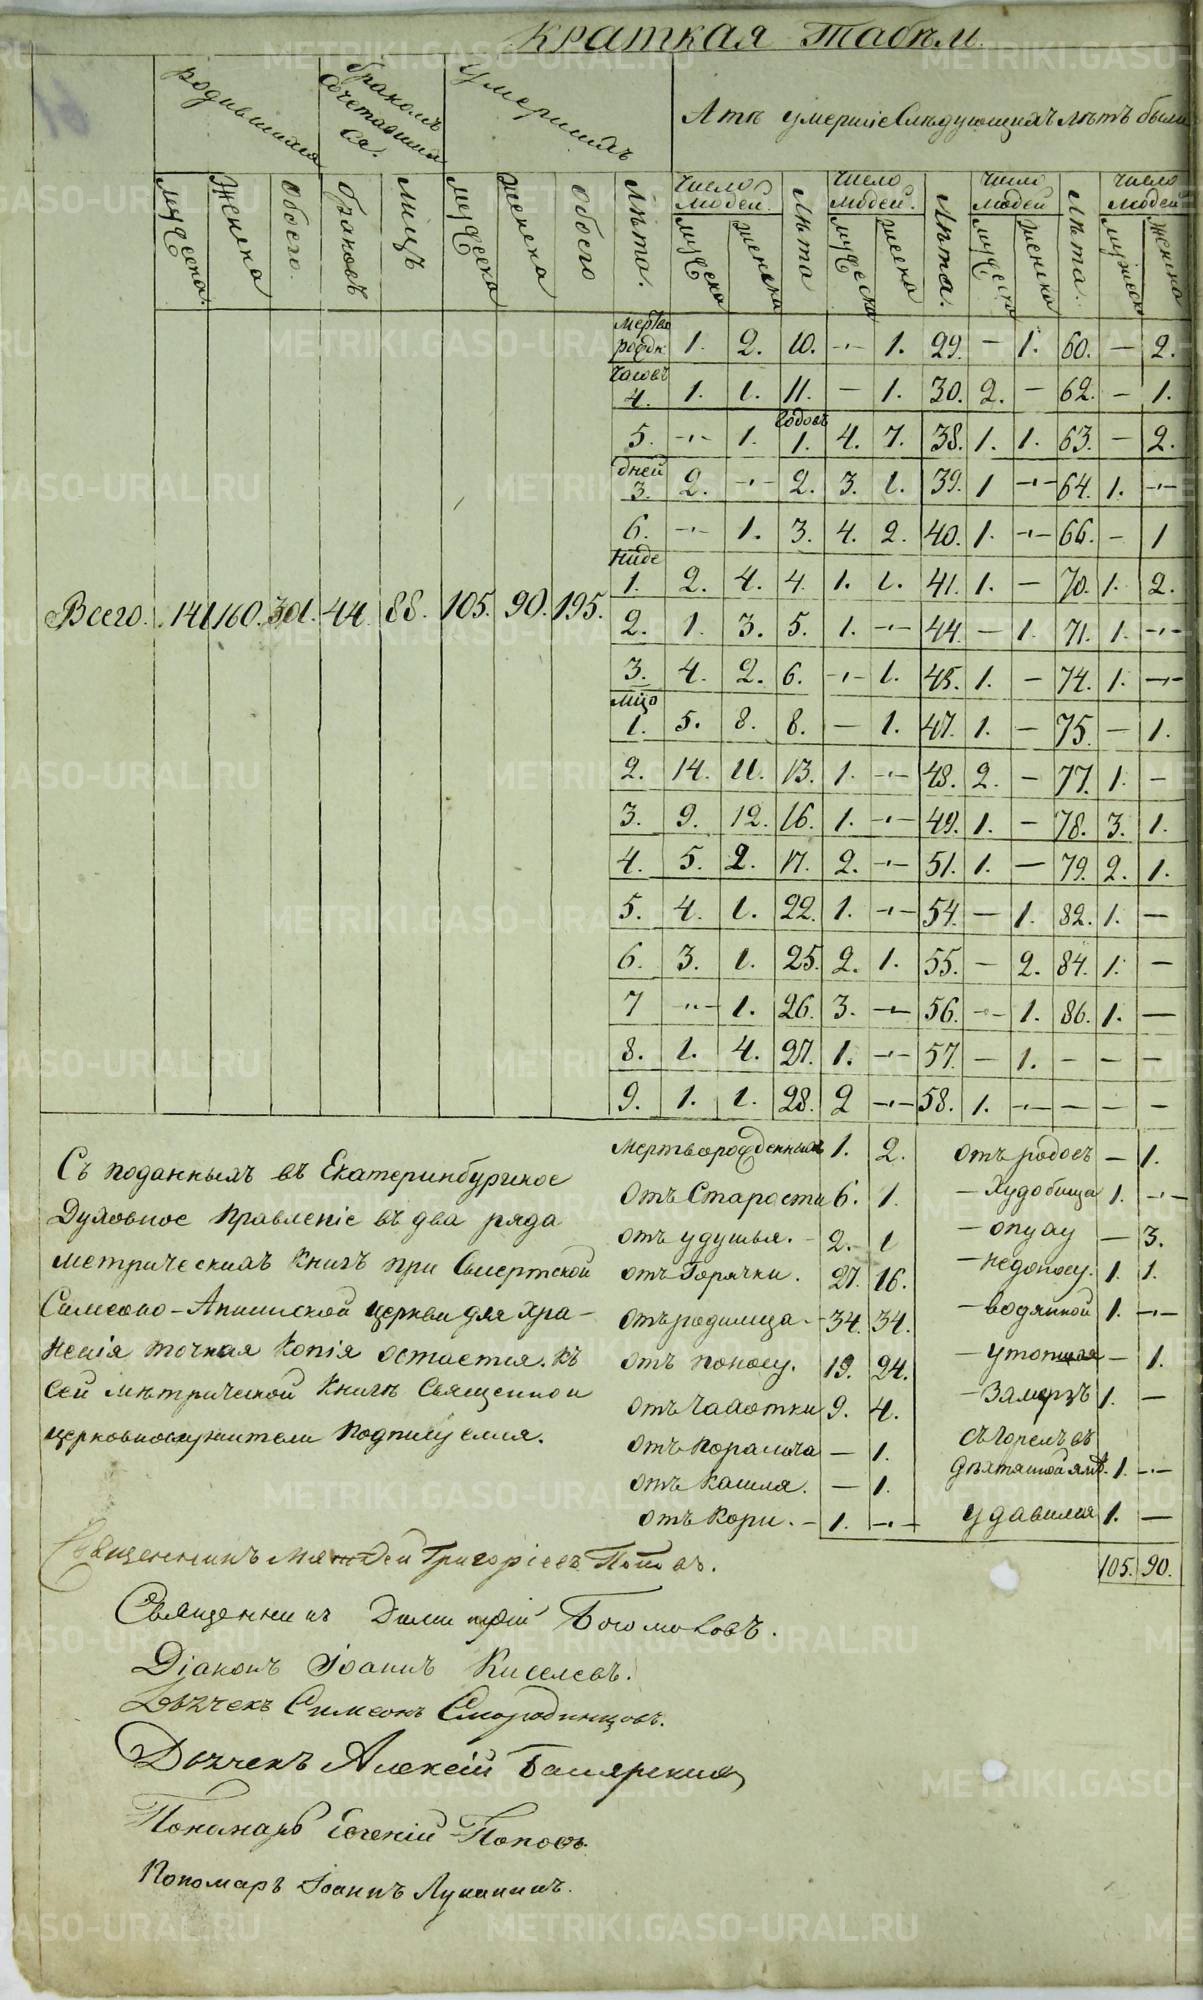 Краткая Табѣль
родившихся
бракомъ сочетавшихся.
Умершихъ
А тѣ умершіе Слѣдующихъ лѣтъ были
мужеска. Женска Обоего. браковъ лицъ мужеска женска обоего Лѣта. Число Людей. мужеска женска Лѣта Число Людей. мужеска женска Лѣта. Число Людей мужеска женска Лѣта. Число Людей мужеска женска
мертворожден. 1. 2. 10. - 1. 29. - 1. 60. - 2.
часовъ 4. 1. 1. 11. - 1. 30. 2. - 62. - 1.
5. - 1. годовъ 1. 4. 7. 38. 1. 1. 63. - 2.
дней 3. 2. - 2. 3. 1. 39. 1 - 64. 1. -
6. - 1. 3. 4. 2. 40. 1. - 66. - 1
Ниде 1. 2. 4. 4. 1. 1. 41. 1. - 70. 1. 2.
Всего. 141. 160. 301. 44. 88. 105. 90. 195.
2. 1. 3. 5. 1. - 44. - 1. 71. 1. -
3. 4. 2. 6. - 1. 45. 1. - 74. 1. -
мцо 1. 5. 8. 8. - 1. 47. 1. - 75. - 1.
2. 14. 11. 13. 1. - 48. 2. - 77. 1. -
3. 9. 12. 16. 1. - 49. 1. - 78. 3. 1.
4. 5. 2. 17. 2. - 51. 1. - 79. 2. 1.
5. 4. 1. 22. 1. - 54. - 1. 82. 1. -
6. 3. 1. 25. 2. 1. 55. - 2. 84. 1. -
7 - 1. 26. 3. - 56. - 1. 86. 1. -
8. 1. 4. 27. 1. - 57. - 1. - - -
9. 1. 1. 28. 2 - 58. 1. - - - -
Съ поданныхъ въ Екатеринбургское
Духовное Правленіе въ два ряда
метрическихъ Книгъ при Смертской
Симеоно-Аннинской церкви для хра-
ненія точная Копія остается. Къ
сей метрической Книгѣ Священно и
церковнослужители Подписуемся.
мертворожденныхъ 1. 2.
отъ Старости 6. 1.
отъ удушья. - 2. 1
отъ Горячки. 27. 16.
отъ родимца. - 34. 34.
отъ поносу. 19. 24.
отъ Чахотки 9. 4.
отъ Паралича - 1.
отъ Кашля. - 1.
отъ Кори. - 1. -
отъ родовъ - 1.
- Худобища 1. -
- опуху - 3.
- недоносу. 1. 1.
- водянной 1. -
- утопшая - 1.
- Замерзъ 1. -
Сгорелъ въ
дехтяной ямѣ. 1. -
удавился 1. -
105. 90.
Священникъ Григоріевъ Поповъ.
Священникъ Димитрій Богомоловъ.
Діаконъ Іоаннъ Киселевъ.
Дьячекъ Симеонъ Смородинцовъ.
Дьячекъ Алексій
Пономарь Евгеній Поповъ.
Пономарь Іоаннъ Лукинихъ.
METRIKI.GASO-URAL.RU